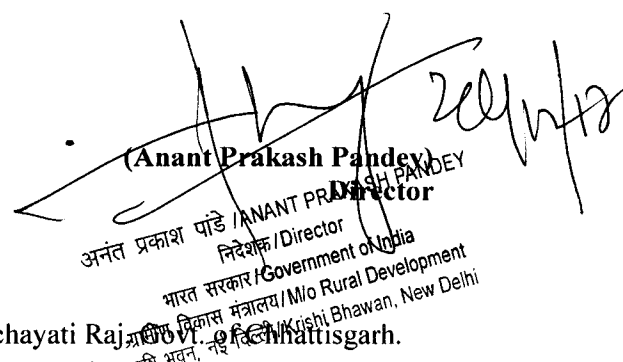 (Anant Prakash Pandey)
Director
अनंत प्रकाश पांडे /ANANT PRAKASH PANDEY
निदेशक/Director
भारत सरकार/Government of India
ग्रामीण विकास मंत्रालय/M/o Rural Development
कृषि भवन, नई दिल्ली/Krishi Bhawan, New Delhi
chayati Raj, Govt. of Chhattisgarh.